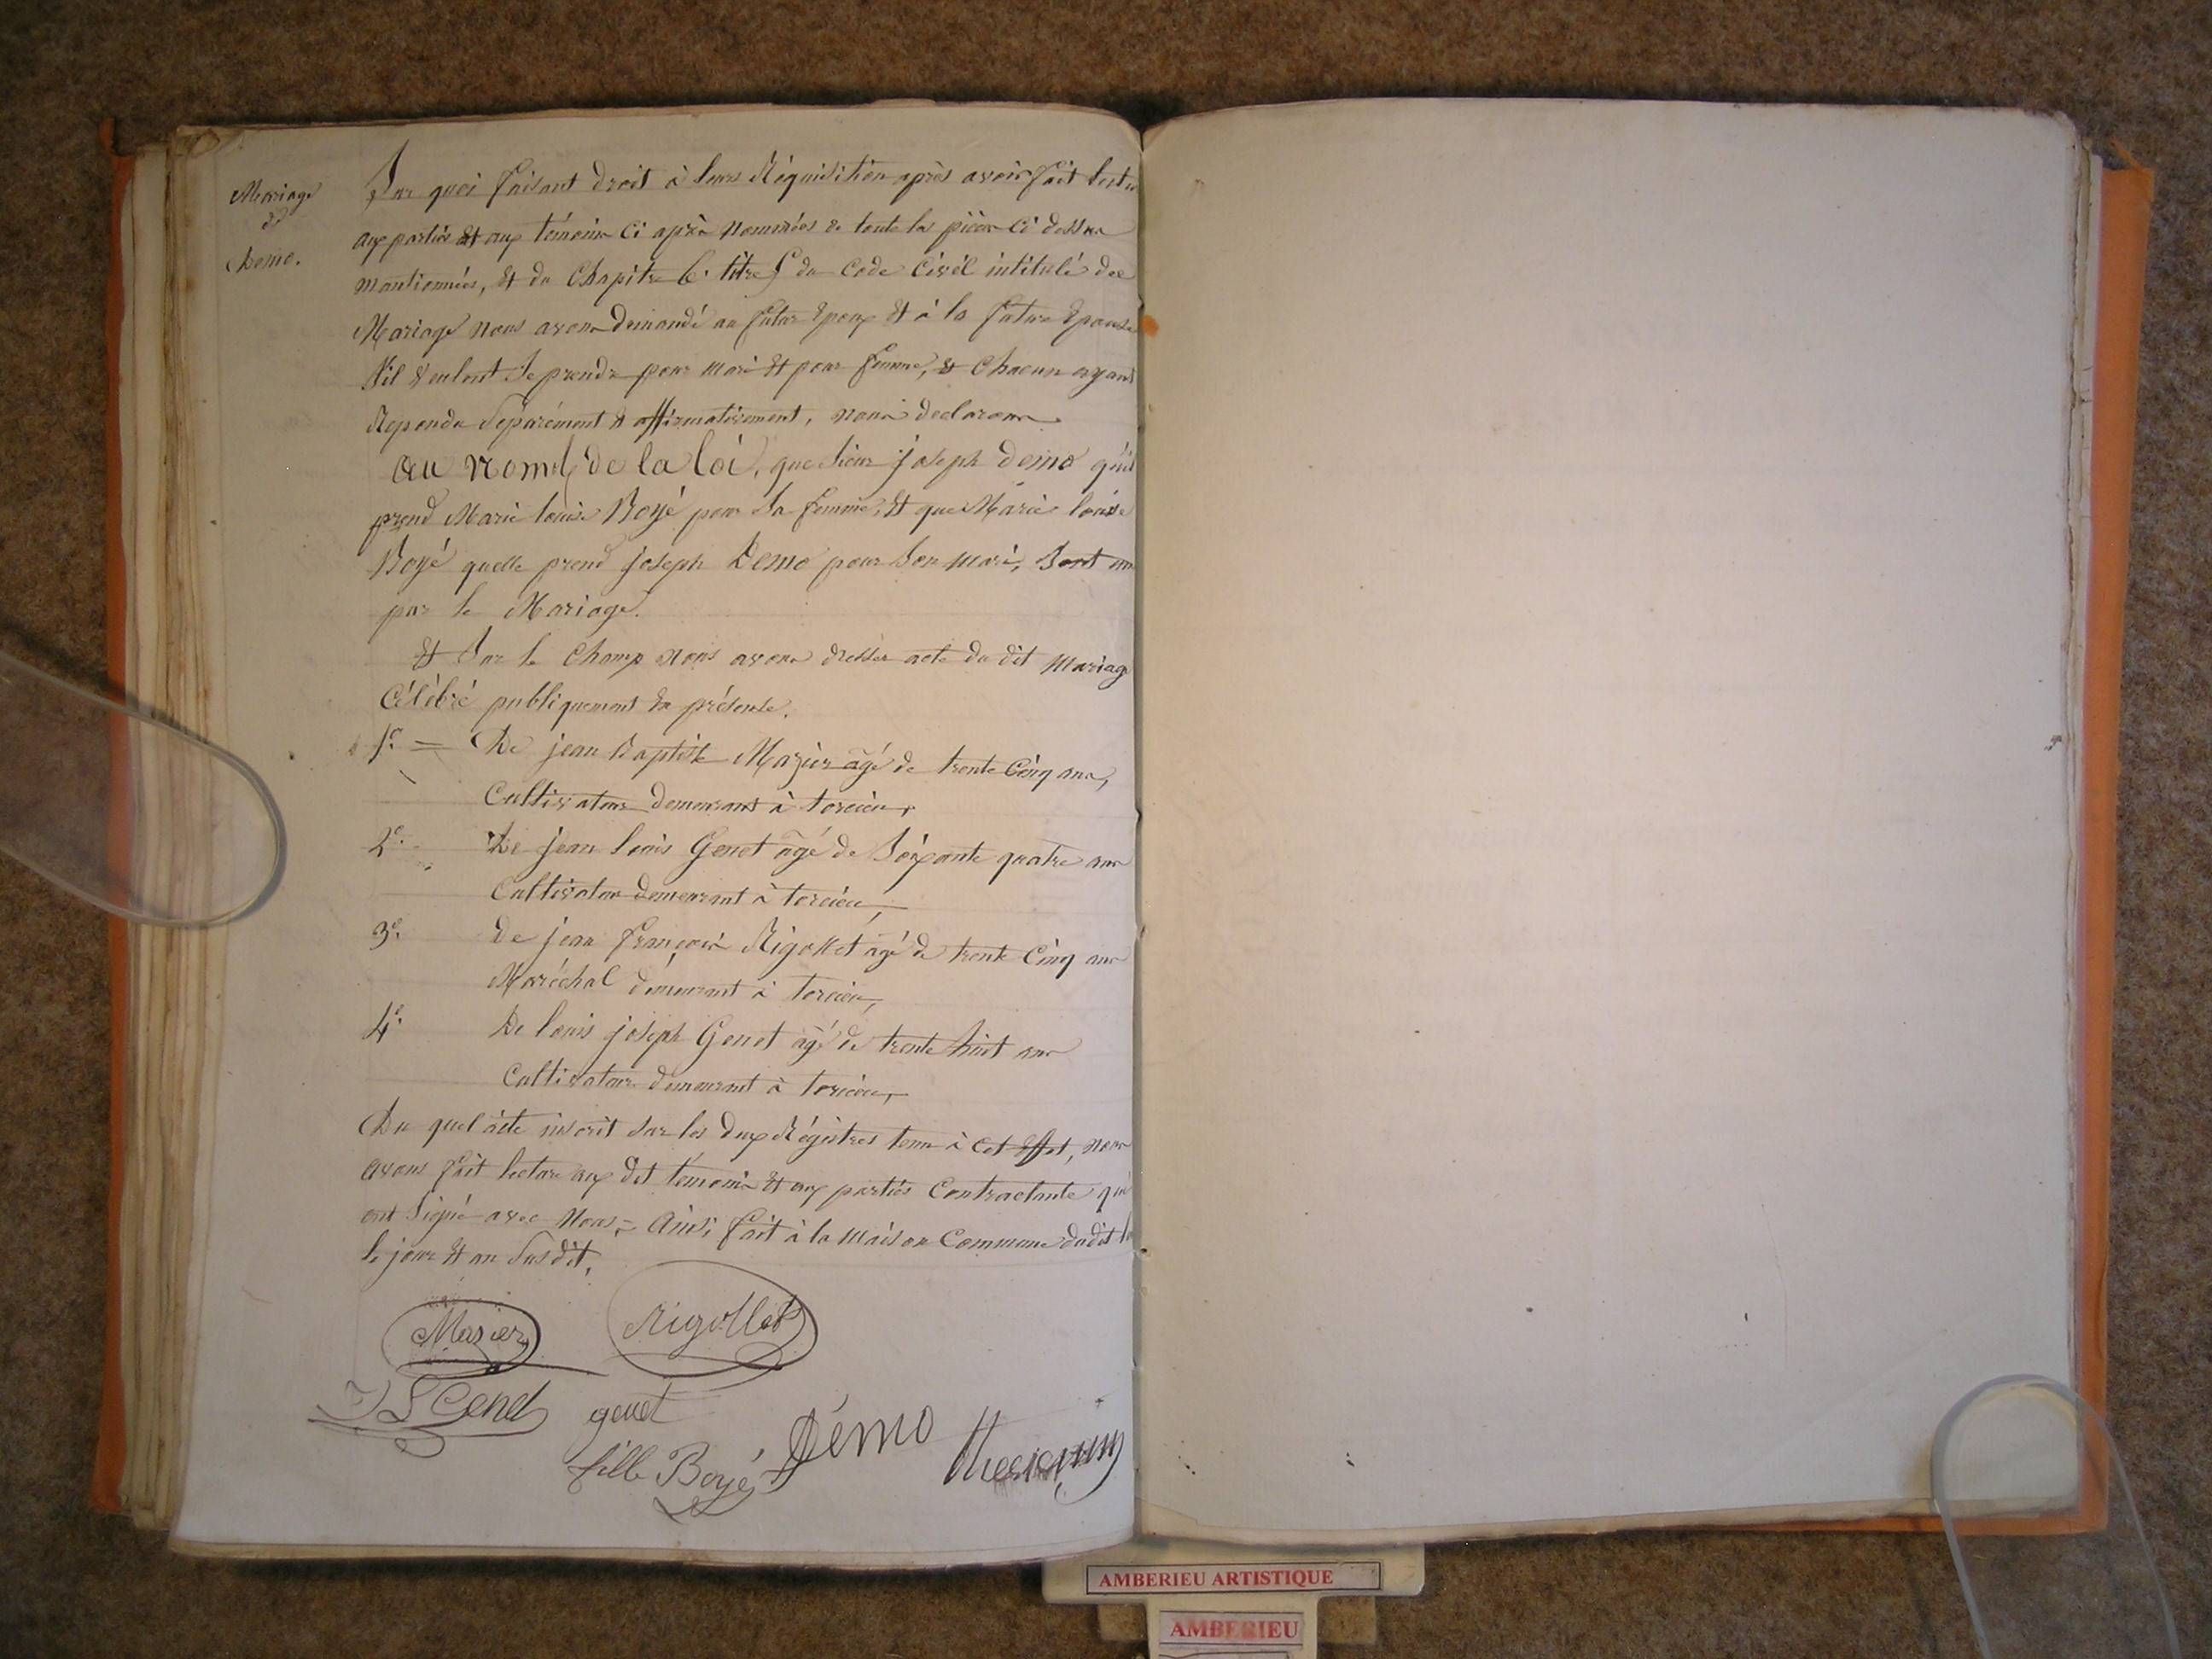 Mariage
de
Demo.
Sur quoi faisant droit à leurs Réquisition après avoir fait lectu
aux parties et aux témoins ci après nommées de toute les pièces ci dessus
mantionnées, et du Chapitre 6. titre 5 du Code Civil intitulé des
Mariage nous avons demandé au futur Epoux et à la future Epouse
s'il veulent se prendre pour mari et pour femme, et chacun ayant
Repondu Séparément et affirmativement, nous declarons
au nom de la loi, que Sieur joseph demo qu'il
prend Marie louise Boyé pour sa femme, et que Marie louise
Boyé quelle prend joseph Demo pour son mari, Sont uni
par le Mariage.
et Sur le Champ nous avons dresser acte du dit Mariage
Célébré publiquement en présense.
1º = De jean Baptiste Mazier âgé de trente Cinq ans,
Cultivateur demeurant à torcieu,
2º. De jean louis Genet âgé de Soixante quatre ans
Cultivateur demeurant à torcieu,
3º. De jean françois Rigollet âgé de trente Cinq ans
Maréchal demeurant à torcieu,
4º. De louis joseph Genet âgé de trente huit ans
Cultivateur demeurant à torcieu,
Du quel acte inscrit sur les deux Régistres tenu à cet effet, nous
avons fait lecture aux dit témoins et aux parties Contractante qui
ont Signé avec Nous, = Ainsi fait à la maison Commune dudit
le jour et an Susdit,
Masier Rigollet
J L Genet genet
fille Boyé Démo
AMBERIEU ARTISTIQUE
AMBERIEU